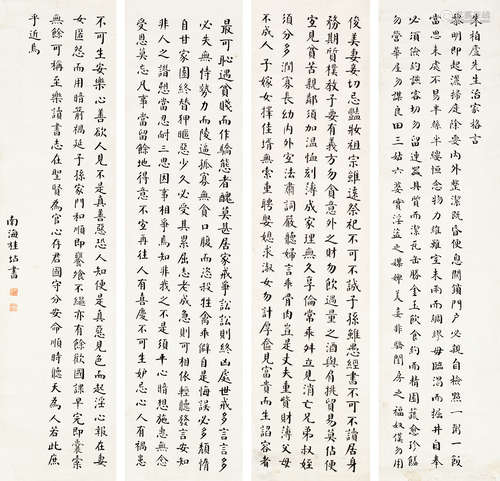 朱柏廬先生治家格言
黎明即起灑掃庭除要內外整潔既昏便息關鎖門戶必親自檢點一粥一飯
當思來處不易半絲半縷恆念物力維艱宜未雨而綢繆毋臨渴而掘井自奉
必須儉約讌客切勿留連器具質而潔瓦缶勝金玉飲食約而精園蔬愈珍饈
勿營華屋勿謀良田三姑六婆實淫盜之媒婢美妾非閨房之福奴僕勿用
俊美妻妾切忌豔妝祖宗雖遠祭祀不可不誠子孫雖愚經書不可不讀居身
務期質樸教子要有義方勿貪意外之財勿飲過量之酒與肩挑貿易莫佔便
宜見貧苦親鄰須加溫恤刻薄成家理無久享倫常乖舛立見消亡兄弟叔姪
須分多潤寡長幼內外宜法肅詞嚴聽婦言乖骨肉豈是丈夫重貲財薄父母
不成人子嫁女擇佳壻無索重聘娶媳求淑女勿計厚奩見富貴而生諂容者
最可恥遇貧賤而作驕態者醜莫甚居家戒爭訟訟則終凶處世戒多言言多
必失無恃勢力而陵逼孤寡無貪口腹而恣殺牲禽乖僻自是悔誤必多頹惰
自甘家園終替狎暱惡少久必受其累屈志老成急則可相依輕聽發言安知
非人之譖愬當忍耐三思因事相爭焉知非我之不是須平心暗想施惠無念
受恩莫忘凡事當留餘地得意不宜再往人有喜慶不可生妒忌心人有禍患
不可生安樂心善欲人見不是真善惡恐人知便是真惡見色而起淫心報在妻
女匿怨而用暗箭禍延子孫家門和順即饔飧不繼亦有餘歡國課早完即囊橐
無餘可稱至樂讀書志在聖賢為官心存君國守分安命順時聽天為人若此庶
乎近焉
南海桂坫書